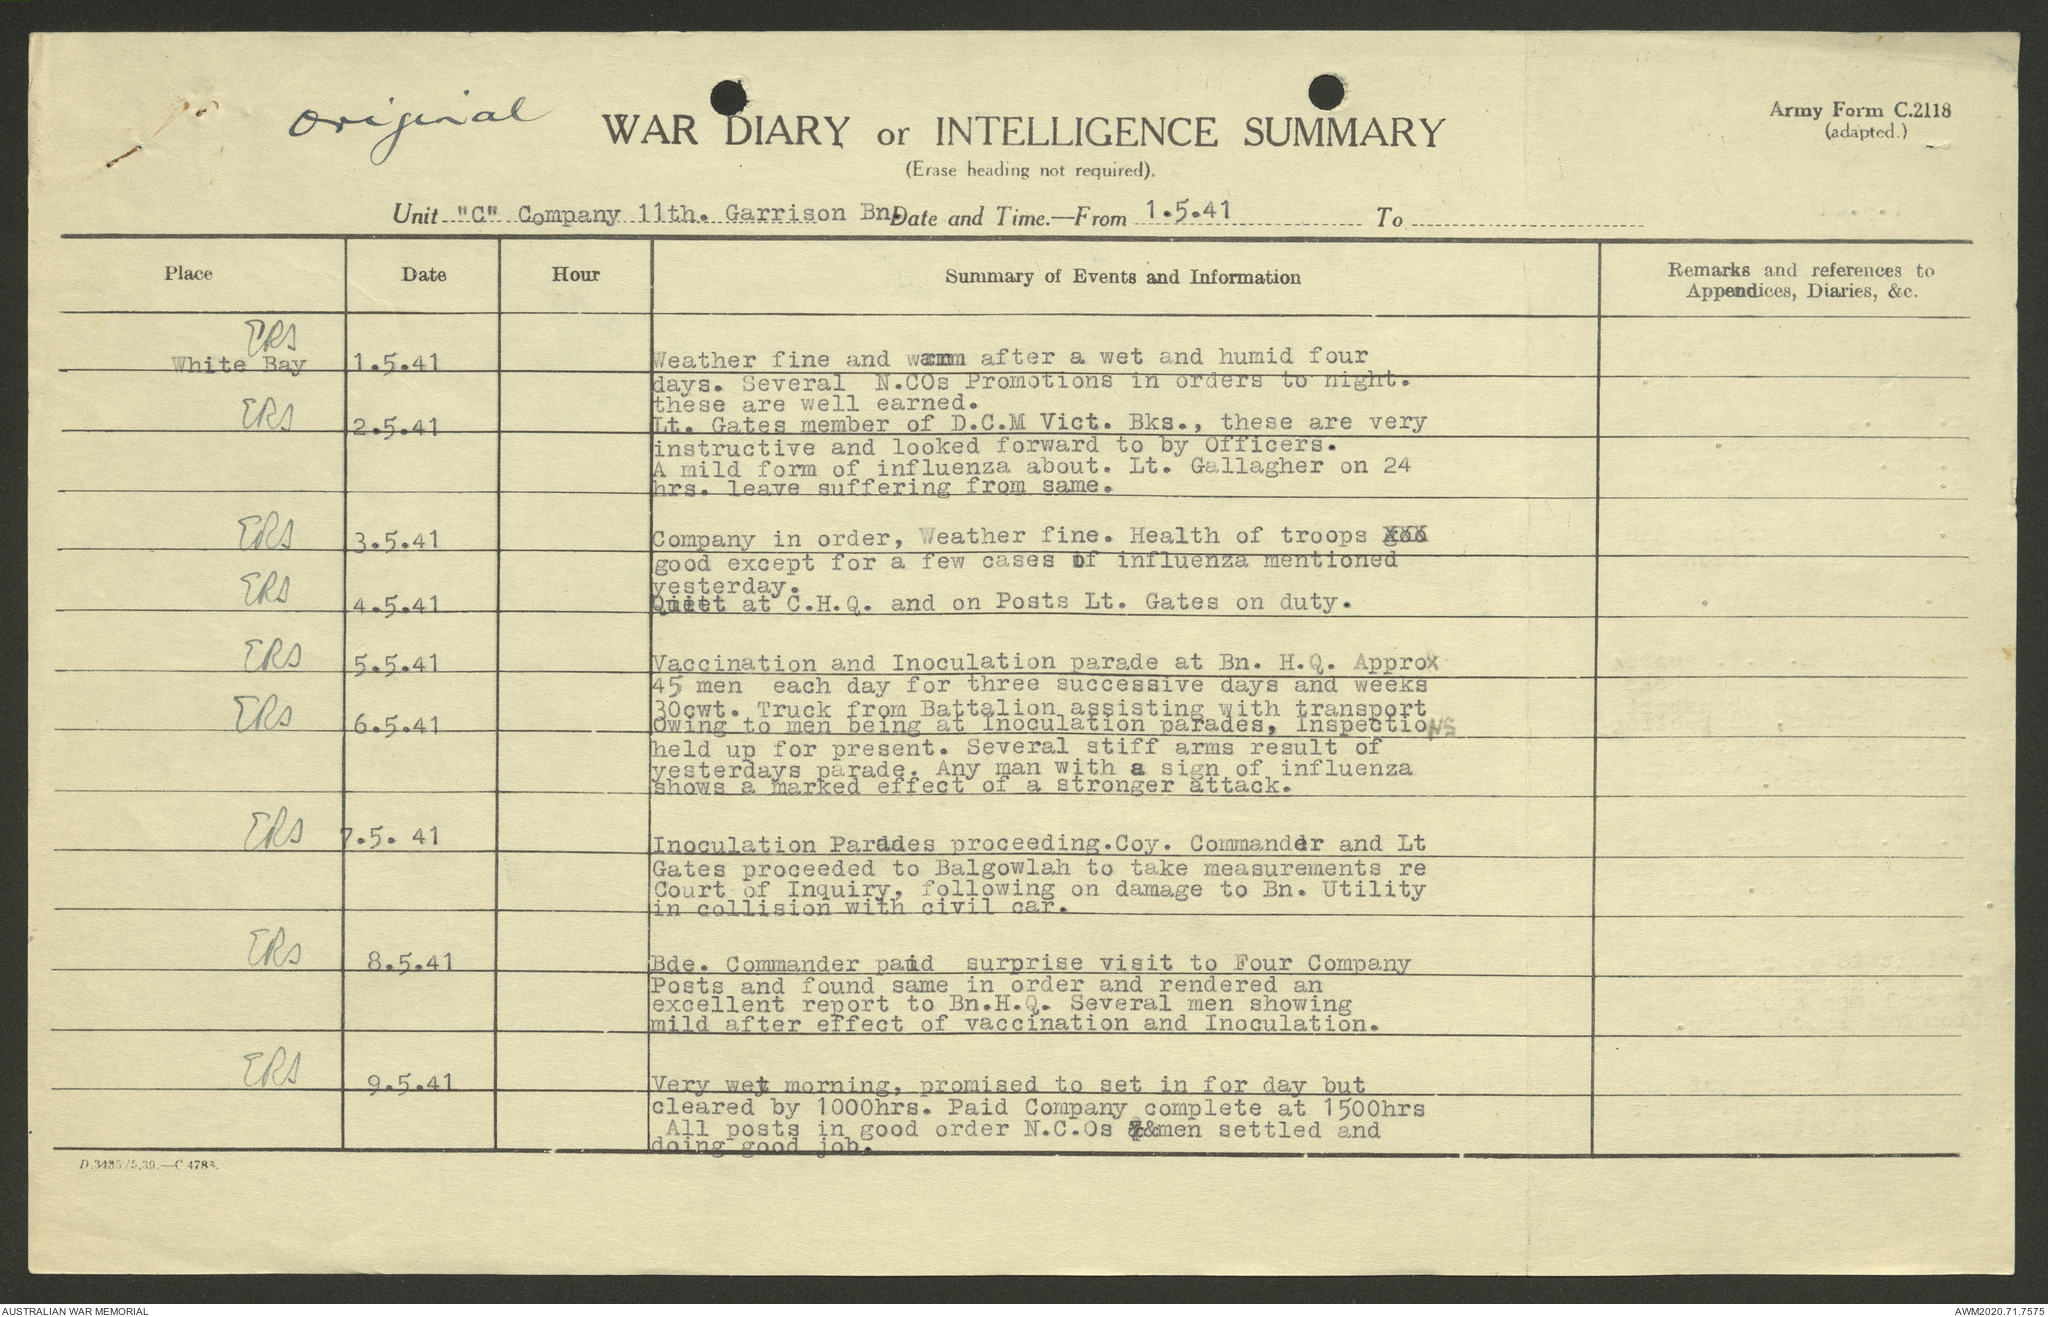 Original
WAR DIARY or INTELLIGENCE SUMMARY
Army Form C.2118
(adapted.)
(Erase heading not required).
Unit "C" Company 11th. Garrison Bn. Date and Time.—From 1.5.41 To
Place Date Hour Summary of Events and Information Remarks and references to
Appendices, Diaries, &c.
ERS
White Bay 1.5.41 Weather fine and warm after a wet and humid four
days. Several N.COs Promotions in orders to night.
these are well earned.
ERS 2.5.41 Lt. Gates member of D.C.M Vict. Bks., these are very
instructive and looked forward to by Officers.
A mild form of influenza about. Lt. Gallagher on 24
hrs. leave suffering from same.
ERS 3.5.41 Company in order, Weather fine. Health of troops
good except for a few cases of influenza mentioned
yesterday.
ERS 4.5.41 Quiet at C.H.Q. and on Posts Lt. Gates on duty.
ERS 5.5.41 Vaccination and Inoculation parade at Bn. H.Q. Approx
45 men each day for three successive days and weeks
30cwt. Truck from Battalion assisting with transport
ERS 6.5.41 Owing to men being at Inoculation parades, InspectioNS
held up for present. Several stiff arms result of
yesterdays parade. Any man with a sign of influenza
shows a marked effect of a stronger attack.
ERS 7.5. 41 Inoculation Parades proceeding.Coy. Commander and Lt
Gates proceeded to Balgowlah to take measurements re
Court of Inquiry, following on damage to Bn. Utility
in collision with civil car.
ERS 8.5.41 Bde. Commander paid surprise visit to Four Company
Posts and found same in order and rendered an
excellent report to Bn.H.Q. Several men showing
mild after effect of vaccination and Inoculation.
ERS 9.5.41 Very wet morning, promised to set in for day but
cleared by 1000hrs. Paid Company complete at 1500hrs
All posts in good order N.C.Os &men settled and
doing good job.
AUSTRALIAN WAR MEMORIAL
AWM2020.71.7575